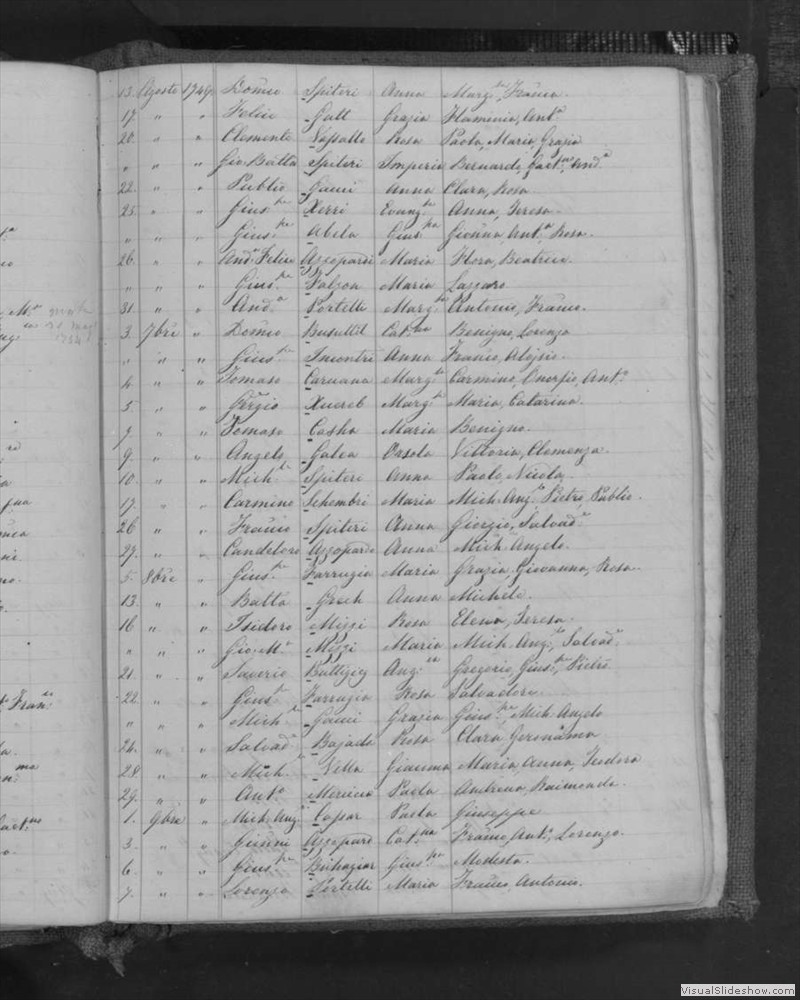 13. Agosto 1749 Domco Spiteri Anna Marg.ta, Franca.
17. " " Felice Gatt Grazia Flaminia, Ant.a
20. " " Clemente Vassallo Rosa Paola, Maria, Grazia
" " " Gio. Batta Spiteri Imperia Bernardo, Gaet.no, And.a
22. " " Publio Gauci Anna Clara, Rosa
25. " " Gius.pe Xerri Evang.ta Anna, Teresa.
" " " Gius.pe Abela Gius.pa Gioanna, Ant.a, Rosa.
26. " " And.a Felice Azzopardi Maria Flora, Beatrice.
" " " Gius.pe Falzon Maria Lazzaro
31. " " And.a Portelli Marg.ta Antonio, Franco.
3. 7bre " Domco Busuttil Cat.na Benigno, Lorenzo
" " " Gius.pe Incontri Anna Franco, Alojsio.
4. " " Tomaso Caruana Marg.ta Carmino, Onofrio, Ant.o
5. " " Sergio Xuereb Marg.ta Maria, Catarina.
7. " " Tomaso Casha Maria Benigno.
9. " " Angelo Galea Orsola Vittoria, Clemenza.
10. " " Mich.le Spiteri Anna Paolo, Nicola,
17. " " Carmino Schembri Maria Mich. Ang.o, Pietro, Publio.
26 " " Franco Spiteri Anna Giorgio, Salvad.e
27. " " Candeloro Azzopardo Anna Mich. Angelo.
5. 8bre " Gius.pe Farrugia Maria Grazia, Giovanna, Rosa.
13. " " Batta Grech Anna Michele.
16. " " Isidoro Mizzi Rosa Elena, Teresa.
" " " Gio. M.a Mizzi Maria Mich. Ang.o, Salvad.e
21. " " Saverio Buttigieg Ang.ca Gregorio, Gius.pe, Pietro
22. " " Gius.pe Farrugia Rosa Salvadore.
" " " Mich.le Gauci Grazia Gius.pe, Mich. Angelo
24. " " Salvad.e Bajada Rosa Clara Geronima
28. " " Mich.le Vella Giacoma Maria, Anna, Teodora
29. " " Ant.o Mercieca Paola Andreua, Raimonda.
1. 9bre " Mich. Ang.o Copar Paola Giuseppe
3. " " Gianni Azzopard Cat.na Franco, Ant.o, Lorenzo.
6. " " Gius.pe Buhagiar Gius.pa Modesta.
7. " " Lorenzo Portelli Maria Franco, Antonio.
VisualSlideshow.com